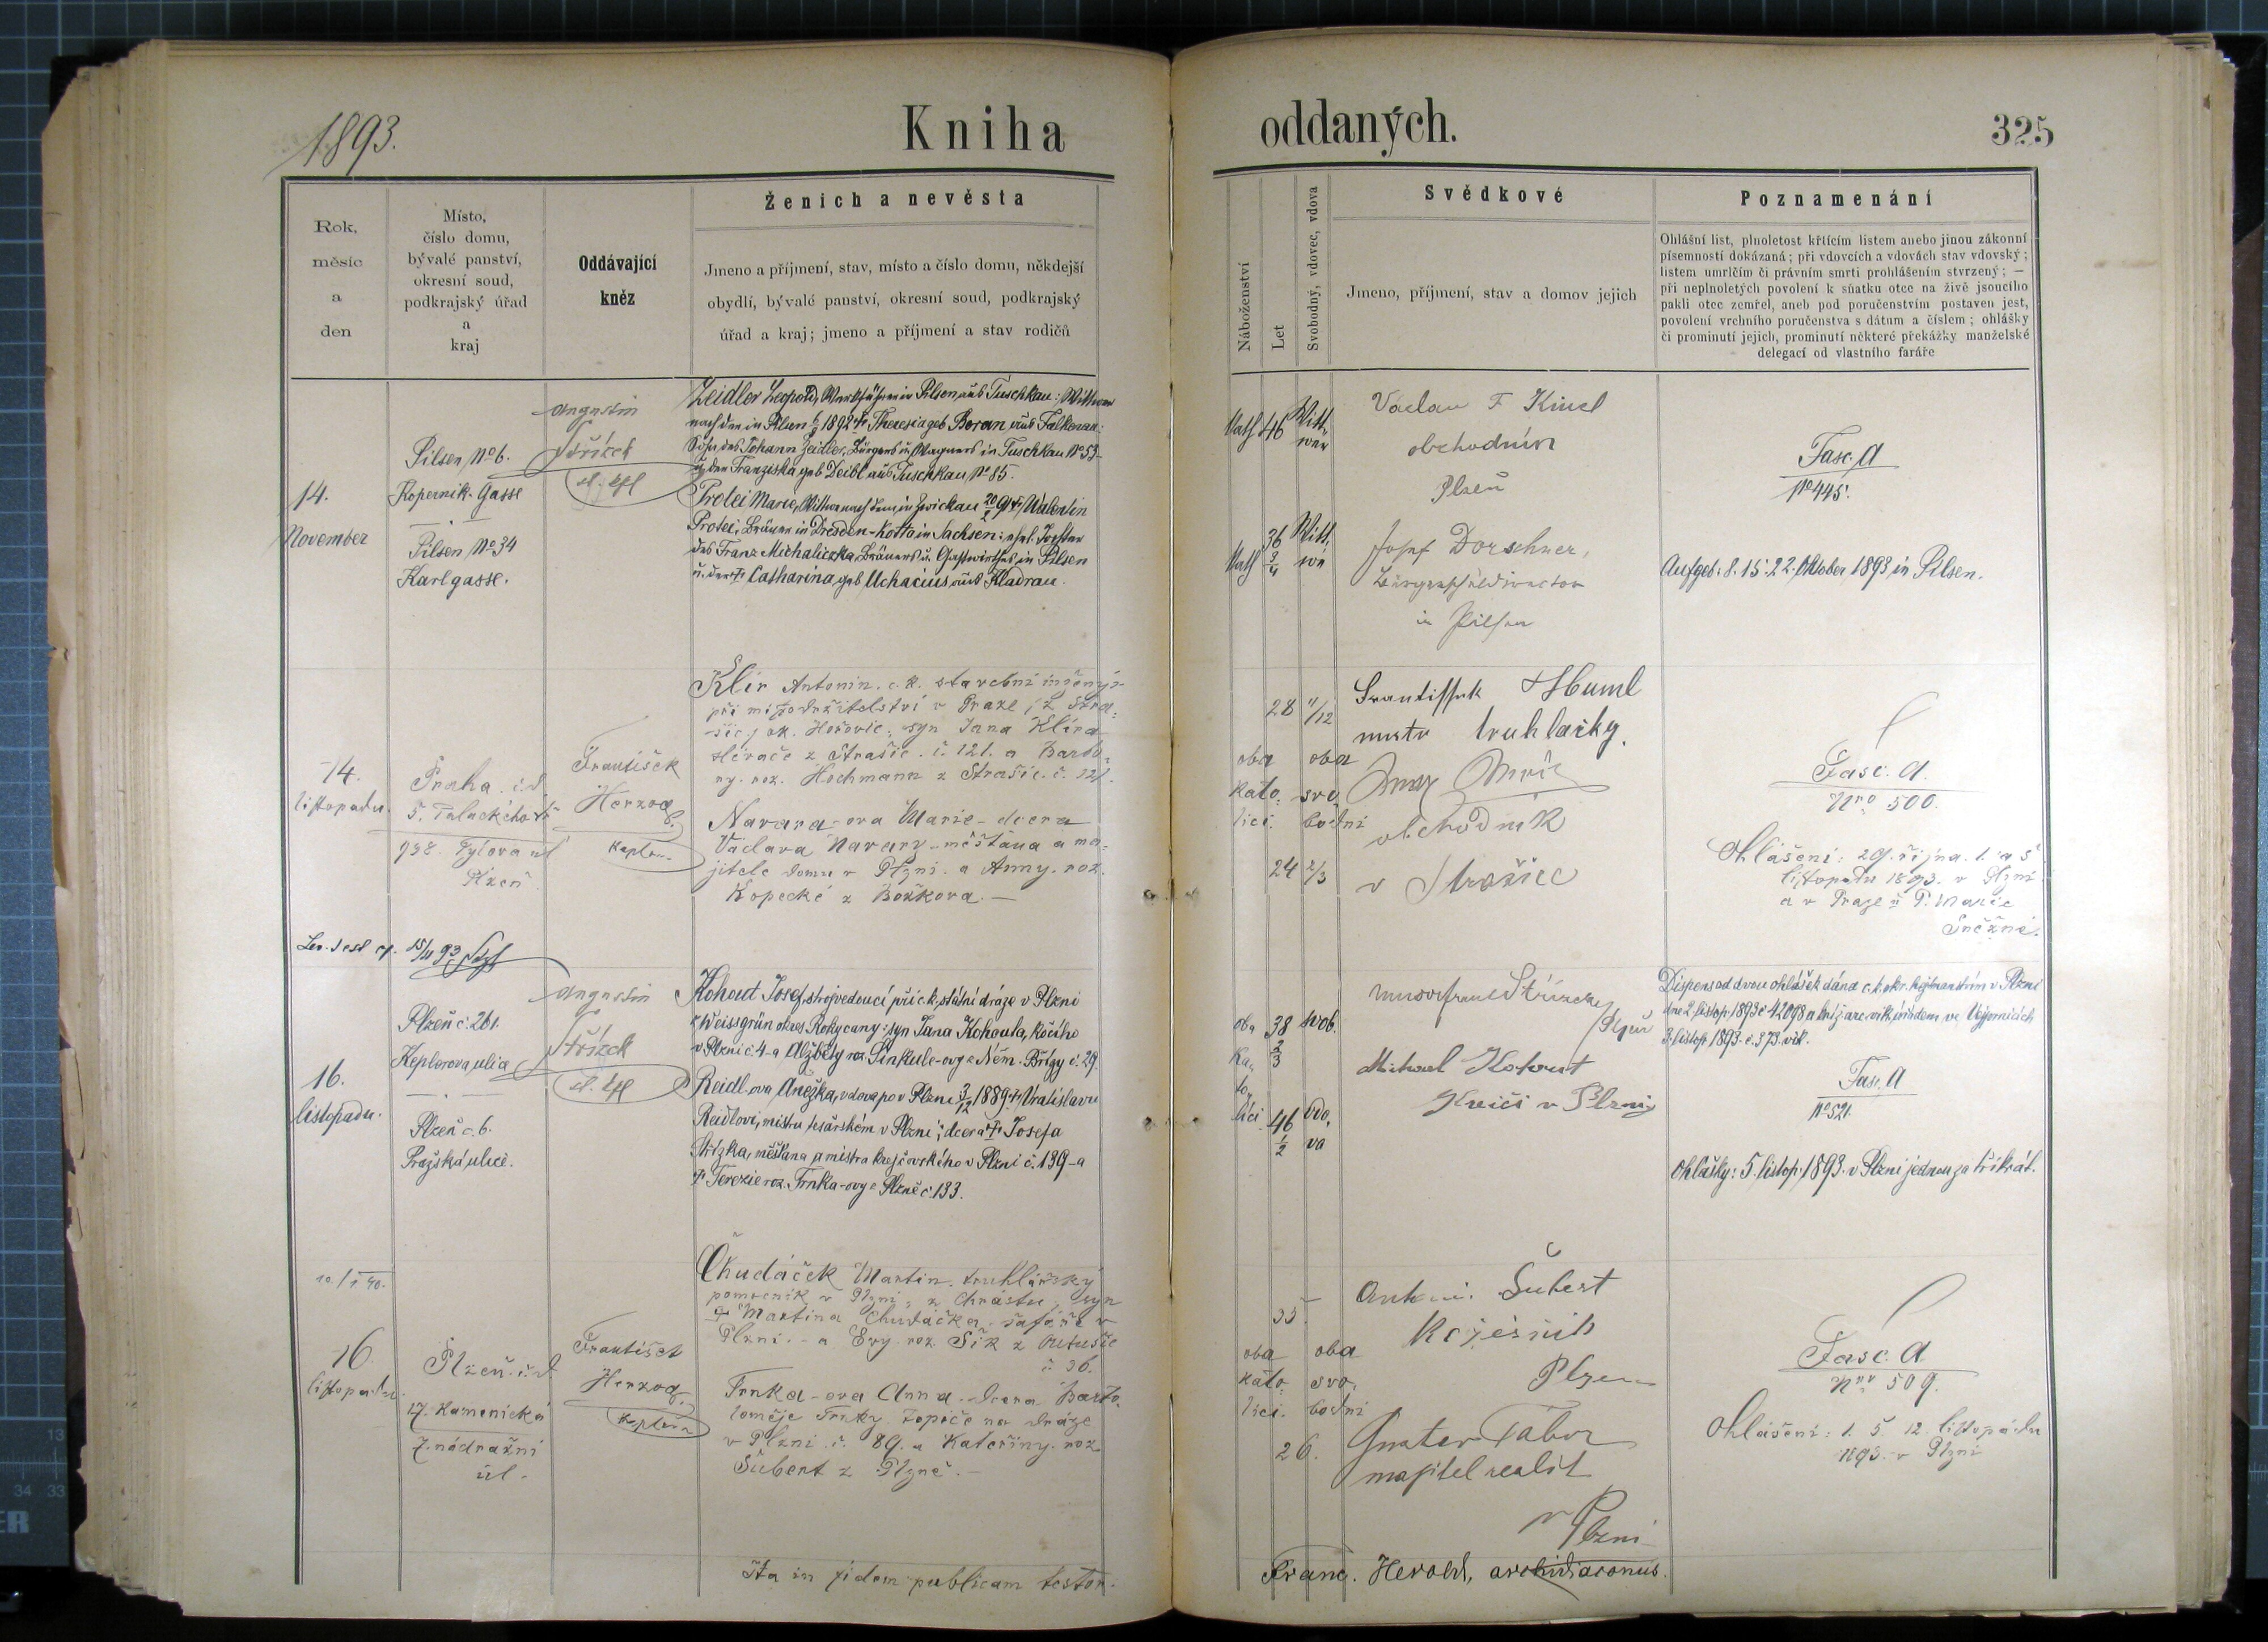 1893.
Kniha
oddaných.
325
Rok,
měsíc
a
den
Místo,
číslo domu,
bývalé panství,
okresní soud,
podkrajský úřad
a
kraj
Oddávající
kněz
Ženich a nevěsta
Jmeno a příjmení, stav, místo a číslo domu, někdejší
obydlí, bývalé panství, okresní soud, podkrajský
úřad a kraj; jmeno a příjmení a stav rodičů
Náboženství
Let
Svobodný, vdovec, vdova
Svědkové
Jmeno, příjmení, stav a domov jejich
Poznamenání
Ohlášní list, plnoletost křticím listem anebo jinou zákonní
písemností dokázaná; při vdovcích a vdovách stav vdovský;
listem umrlčím či právním smrti prohlášením stvrzený; —
při neplnoletých povolení k sňatku otce na živě jsoucího
pakli otec zemřel, aneb pod poručenstvím postaven jest,
povolení vrchního poručenstva s dátum a číslem; ohlášky
či prominutí jejich, prominutí některé překážky manželské
delegací od vlastního faráře
14.
November
Pilsen No 6.
Kopernik-Gasse
Pilsen No 34
Karlgasse.
Augustin
Střízek
Zeidler Leopold, Werkführer in Pilsen aus Tuschkau; Wittwer
nach der in Pilsen 1892 † Theresia geb Beran aus Falkenau:
Sohn des Johann Zeidler, Bürgers u. Wagners in Tuschkau No 53-
u. der Franziska geb Deibl aus Tuschkau No 85.
Protei Marie, Wittwe nach dem in Zwickau 20/2 91 † Valentin
Protei, Bräuer in Dresden-Kotta in Sachsen; ehel. Tochter
des Franz Michaliczka, Bräuers u. Gastwirthes in Pilsen
u. der † Catharina geb Uchacius aus Kladrau.
Kath 46 Witt-
wer
Kath 36 3/4 Witt.
we
Václav F Kincl
obchodník
Plzeň
Josef Dorschner,
Bürgerschuldirector
in Pilsen
Fasc. A
No 445.
Aufgeb: 8. 15. 22. Oktober 1893 in Pilsen.
14.
listopadu.
Praha č. d.
5. Palackého
938. Tylova ul
Plzeň
František
Herzog
kaplan
Klír Antonín. c. k. stavební inženýr
při místodržitelství v Praze, z Stra-
šic, ok. Hořovic, syn Jana Klíra
slévače z Strašic. č. 121. a Barbo-
ry. roz. Hochmann z Strašic. č. 121.
Navara-ova Marie - dcera
Václava Navary - měšťana a ma-
jitele domu v Plzni. a Anny. roz.
Kopecké z Božkova. —
28 11/12
oba oba
kato- svo-
líci. bodni
24 2/3
Frantissek Huml
mistr truhlařky.
obchodník
v Strašice
Fasc. A.
Nro 500.
Ohlášení: 29. října. 1. a 5.
listopadu 1893. v Plzni
a v Praze u P. Marie
Sněžné.
15/11 93
16.
listopadu.
Plzeň č. 261.
Keplerova ulice
Plzeň č. 6.
Pražská ulice.
Augustin
Střízek
Kohout Josef, strojvedoucí při c. k. státní dráze v Plzni
z Weissgrün okres Rokycany; syn Jana Kohouta, kočího
v Plzni č. 4 - a Alžběty roz. Šinkule-ovy z Něm. Břízy č. 29.
Reidl-ova Anežka, vdova po v Plzni 3/12 1889 † Vratislavu
Reidlovi, mistru tesařském v Plzni; dcera † Josefa
Střízka, měšťana a mistra krejčovského v Plzni č. 139 - a
† Terezie roz. Trnka-ovy z Plzně č. 133.
oba 38 2/3 svob.
ka-
to-
líci 46 1/2 vdo-
va
Plzeň
Michael Kohout
Krejčí v Plzni
Dispens od dvou ohlášek dána c. k. okr. hejtmanstvím v Plzni
dne 2. listop. 1893 č. 42098 a kníž. arc. vik. úřadem ve Vejprnicích
3. listop. 1893. č. 373. vik.
Fasc. A
No 521.
Ohlášky: 5. listop. 1893. v Plzni jednou za tříkrát.
16
listopadu.
Plzeň č. d.
17. Kamenická
7. nádražní
ul.
František
Herzog
kaplan
Chudáček Martin. truhlářský
pomocník v Plzni, z Chrástu, syn
† Martina Chudáčka, šafáře v
Plzni. - a Evy. roz. Šik z Butušic
č. 36.
Trnka-ova Anna - dcera Barto-
loměje Trnky topiče na dráze
v Plzni. č. 89. a Kateřiny. roz.
Šubert z Plzně. —
35
oba oba
kato- svo-
líci. bodni
26.
Antonín Šubert
Kožešník
Plzeň
Tábor
majitel realit
v Plzni
Fasc. A
Nro 509.
Ohlášení: 1. 5. 12. listopadu
1893. v Plzni
Ita in fidem publicam testor.
Franc. Herold, archidiaconus.